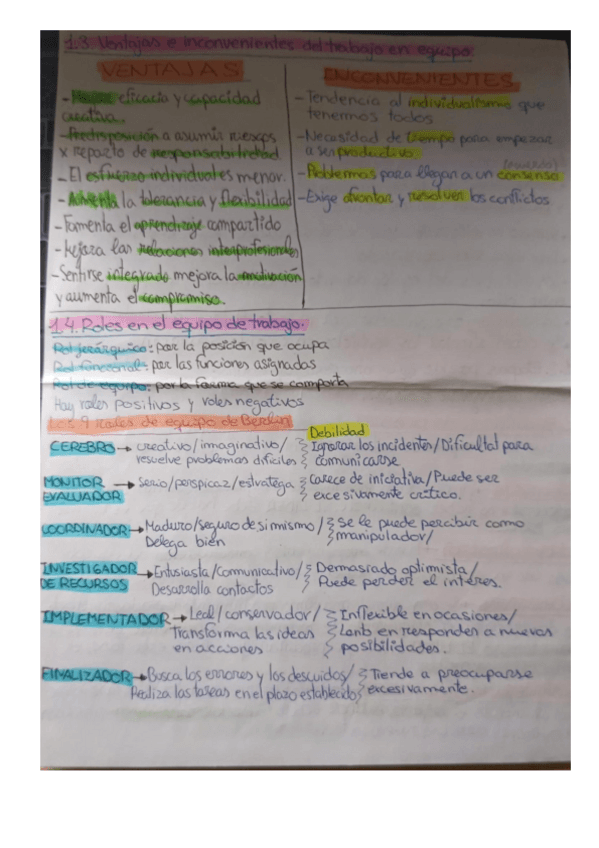 1.3. Ventajas e inconvenientes del trabajo en equipo.
VENTAJAS
- eficacia y capacidad
creativa.
- Predisposición a asumir riesgos
x reparto de responsabilidad
- El esfuerzo individual es menor.
- Aumenta la tolerancia y flexibilidad
- Fomenta el aprendizaje compartido
- Mejora las relaciones interprofesionales
- Sentirse integrado mejora la motivación
y aumenta el compromiso.
INCONVENIENTES
- Tendencia al individualismo que
tenemos todos
- Necesidad de tiempo para empezar
a ser productivo.
(acuerdo)
- Problemas para llegar a un consenso
- Exige afrontar y resolver los conflictos
1.4. Roles en el equipo de trabajo.
Rol jerárquico: por la posición que ocupa
Rol funcional: por las funciones asignadas
Rol de equipo: por la forma que se comporta
Hay roles positivos y roles negativos
Los 9 roles de equipo de Berlin
Debilidad
CEREBRO → creativo/imaginativo/ Ignorar los incidentes/Dificultad para
resuelve problemas difíciles comunicarse
MONITOR → Serio/perspicaz/estratega Carece de iniciativa/Puede ser
EVALUADOR excesivamente crítico.
COORDINADOR → Maduro/seguro de si mismo/ Se le puede percibir como
Delega bien manipulador/
INVESTIGADOR → Entusiasta/comunicativo/ Demasiado optimista/
DE RECURSOS Desarrolla contactos Puede perder el interés.
IMPLEMENTADOR → Leal/conservador/ Inflexible en ocasiones/
Transforma las ideas Lento en responder a nuevas
en acciones posibilidades.
FINALIZADOR → Busca los errores y los descuidos/ Tiende a preocuparse
Realiza las tareas en el plazo establecido excesivamente.